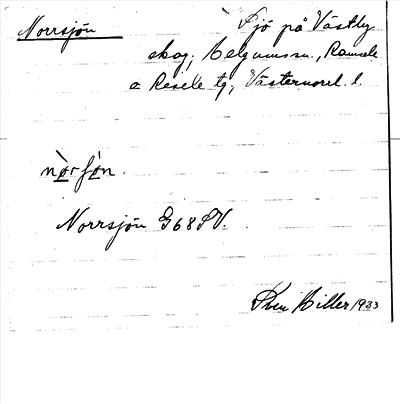 Norrsjön Sjö på Västby
skog, Helgumssn., Ramsele
o Resele tg, Västernorrl. l.
nòrʃòn
Norrsjön G68SV.
Sven Hiller 1933